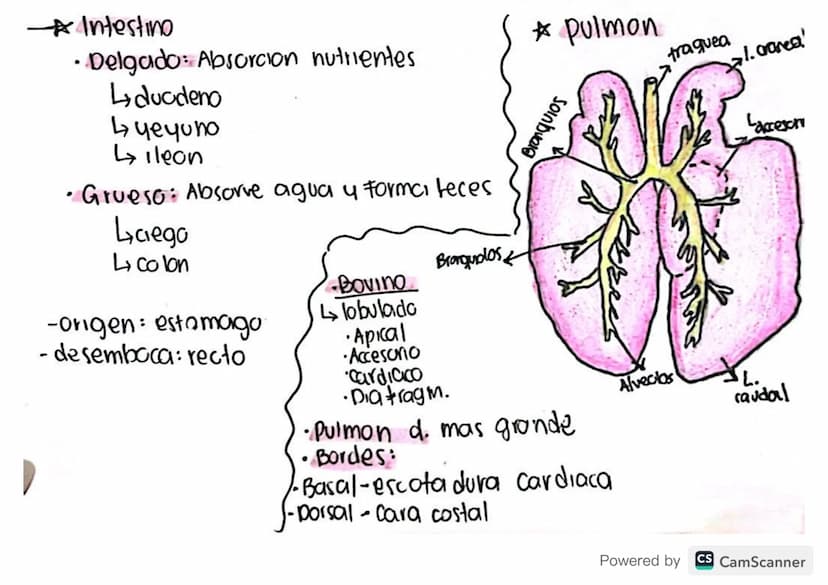 Intestino
· Delgado: Absorcion nutrientes
↳ duodeno
↳ yeyuno
↳ ileon
· Grueso: Absorve agua y forma feces
↳ ciego
↳ colon
- origen: estomago
- desemboca: recto
· Bovino
↳ lobulado
· Apical
· Accesorio
· Cardiaco
· Diafragm.
· Pulmon d. mas grande
· Bordes:
- Basal - escotadura cardiaca
- Dorsal - cara costal
Pulmon
traquea
l. craneal
L. accesori
Bronquios
Bronquiolos
Alveolos
L. caudal
Powered by CS CamScanner